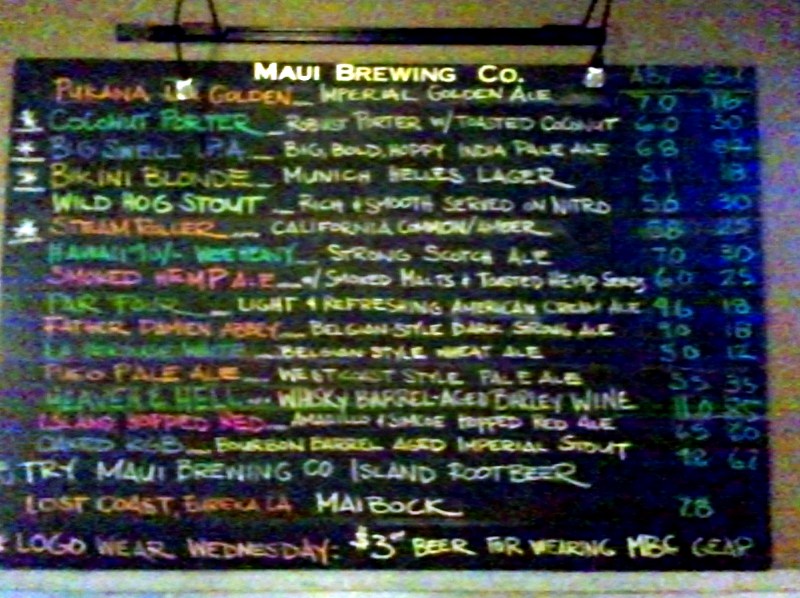 MAUI BREWING CO.
ABV
PUKANA LA GOLDEN IMPERIAL GOLDEN ALE 7.0 16
COCONUT PORTER ROBUST PORTER W/ TOASTED COCONUT 6.0 30
BIG SWELL IPA BIG, BOLD, HOPPY INDIA PALE ALE 6.8 82
BIKINI BLONDE MUNICH HELLES LAGER 5.1 18
WILD HOG STOUT RICH & SMOOTH SERVED ON NITRO 5.6 30
STEAM ROLLER CALIFORNIA COMMON/AMBER 5.8 25
STRONG SCOTCH ALE 7.0 30
SMOKED HEMP ALE W/ SMOKED MALTS & TOASTED HEMP SEEDS 6.0 25
PAR FOUR LIGHT & REFRESHING AMERICAN CREAM ALE 4.6 18
FATHER DAMIEN ABBEY BELGIAN STYLE DARK STRONG ALE 9.0 18
BELGIAN STYLE WHEAT ALE 5.0 12
PALE ALE WEST COAST STYLE PALE ALE 5.5 35
HEAVEN & HELL WHISKY BARREL-AGED BARLEY WINE 11.0
ISLAND HOPPED RED HOPPED RED ALE 6.5
OAKED BOURBON BARREL AGED IMPERIAL STOUT
TRY MAUI BREWING CO ISLAND ROOTBEER
LOST COAST, EUREKA CA MAIBOCK 7.8
* LOGO WEAR WEDNESDAY: $3 BEER FOR WEARING MBC GEAR